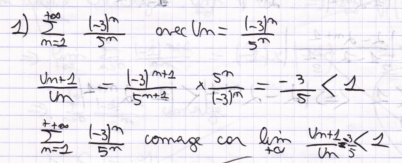 1) +∞ Σ n=1 (-3)^n / 5^n avec Un = (-3)^n / 5^n
Un+1 / Un = (-3)^n+1 / 5^n+1 × 5^n / (-3)^n = -3 / 5 < 1
+∞ Σ n=1 (-3)^n / 5^n converge car lim +∞ Un+1 / Un = 3 / 5 < 1